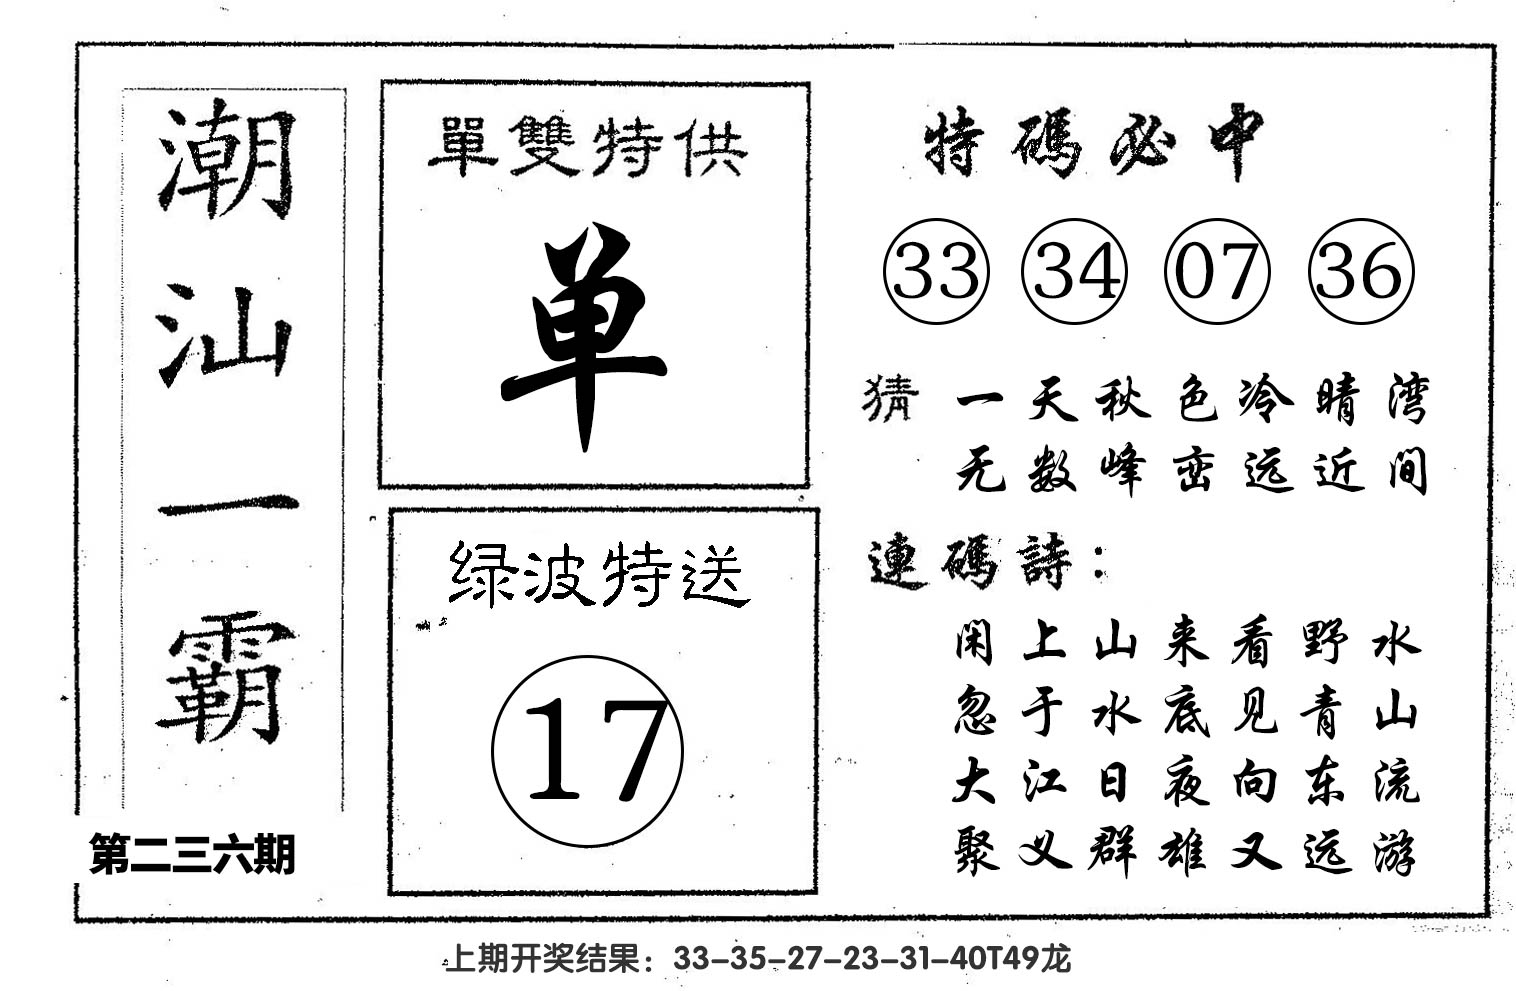 潮汕一霸
第二三六期
單雙特供
单
绿波特送
17
特碼必中
33 34 07 36
猜 一天秋色冷晴湾
无数峰峦远近间
連碼詩：
闲上山来看野水
忽于水底见青山
大江日夜向东流
聚义群雄又远游
上期开奖结果：33-35-27-23-31-40T49龙